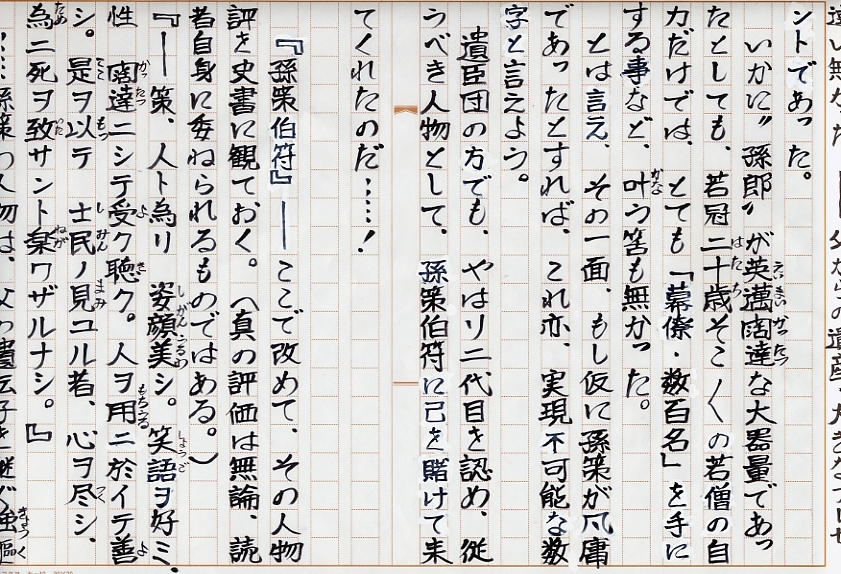 ントであった。
いかに〝孫郎〟が英邁闊達な大器量であっ
たとしても、若冠二十歳そこ〱の若僧の自
力だけでは、とても「幕僚・数百名」を手に
する事など、叶う筈も無かった。
とは言え、その一面、もし仮に孫策が凡庸
であったとすれば、これ亦、実現不可能な数
字と言えよう。
遺臣団の方でも、やはり二代目を認め、従
うべき人物として、孫策伯符に己を賭けて来
てくれたのだ……！
『孫策伯符』——ここで改めて、その人物
評を史書に観ておく。（真の評価は無論、読
者自身に委ねられるものではある。）
『——策、人ト為リ 姿顔美シ。笑語ヲ好ミ、
性 闊達ニシテ受ク聴ク。人ヲ用ニ於イテ善
シ。是ヲ以テ 士民ノ見ユル者、心ヲ尽シ、
為ニ死ヲ致サント楽ワザルナシ。』